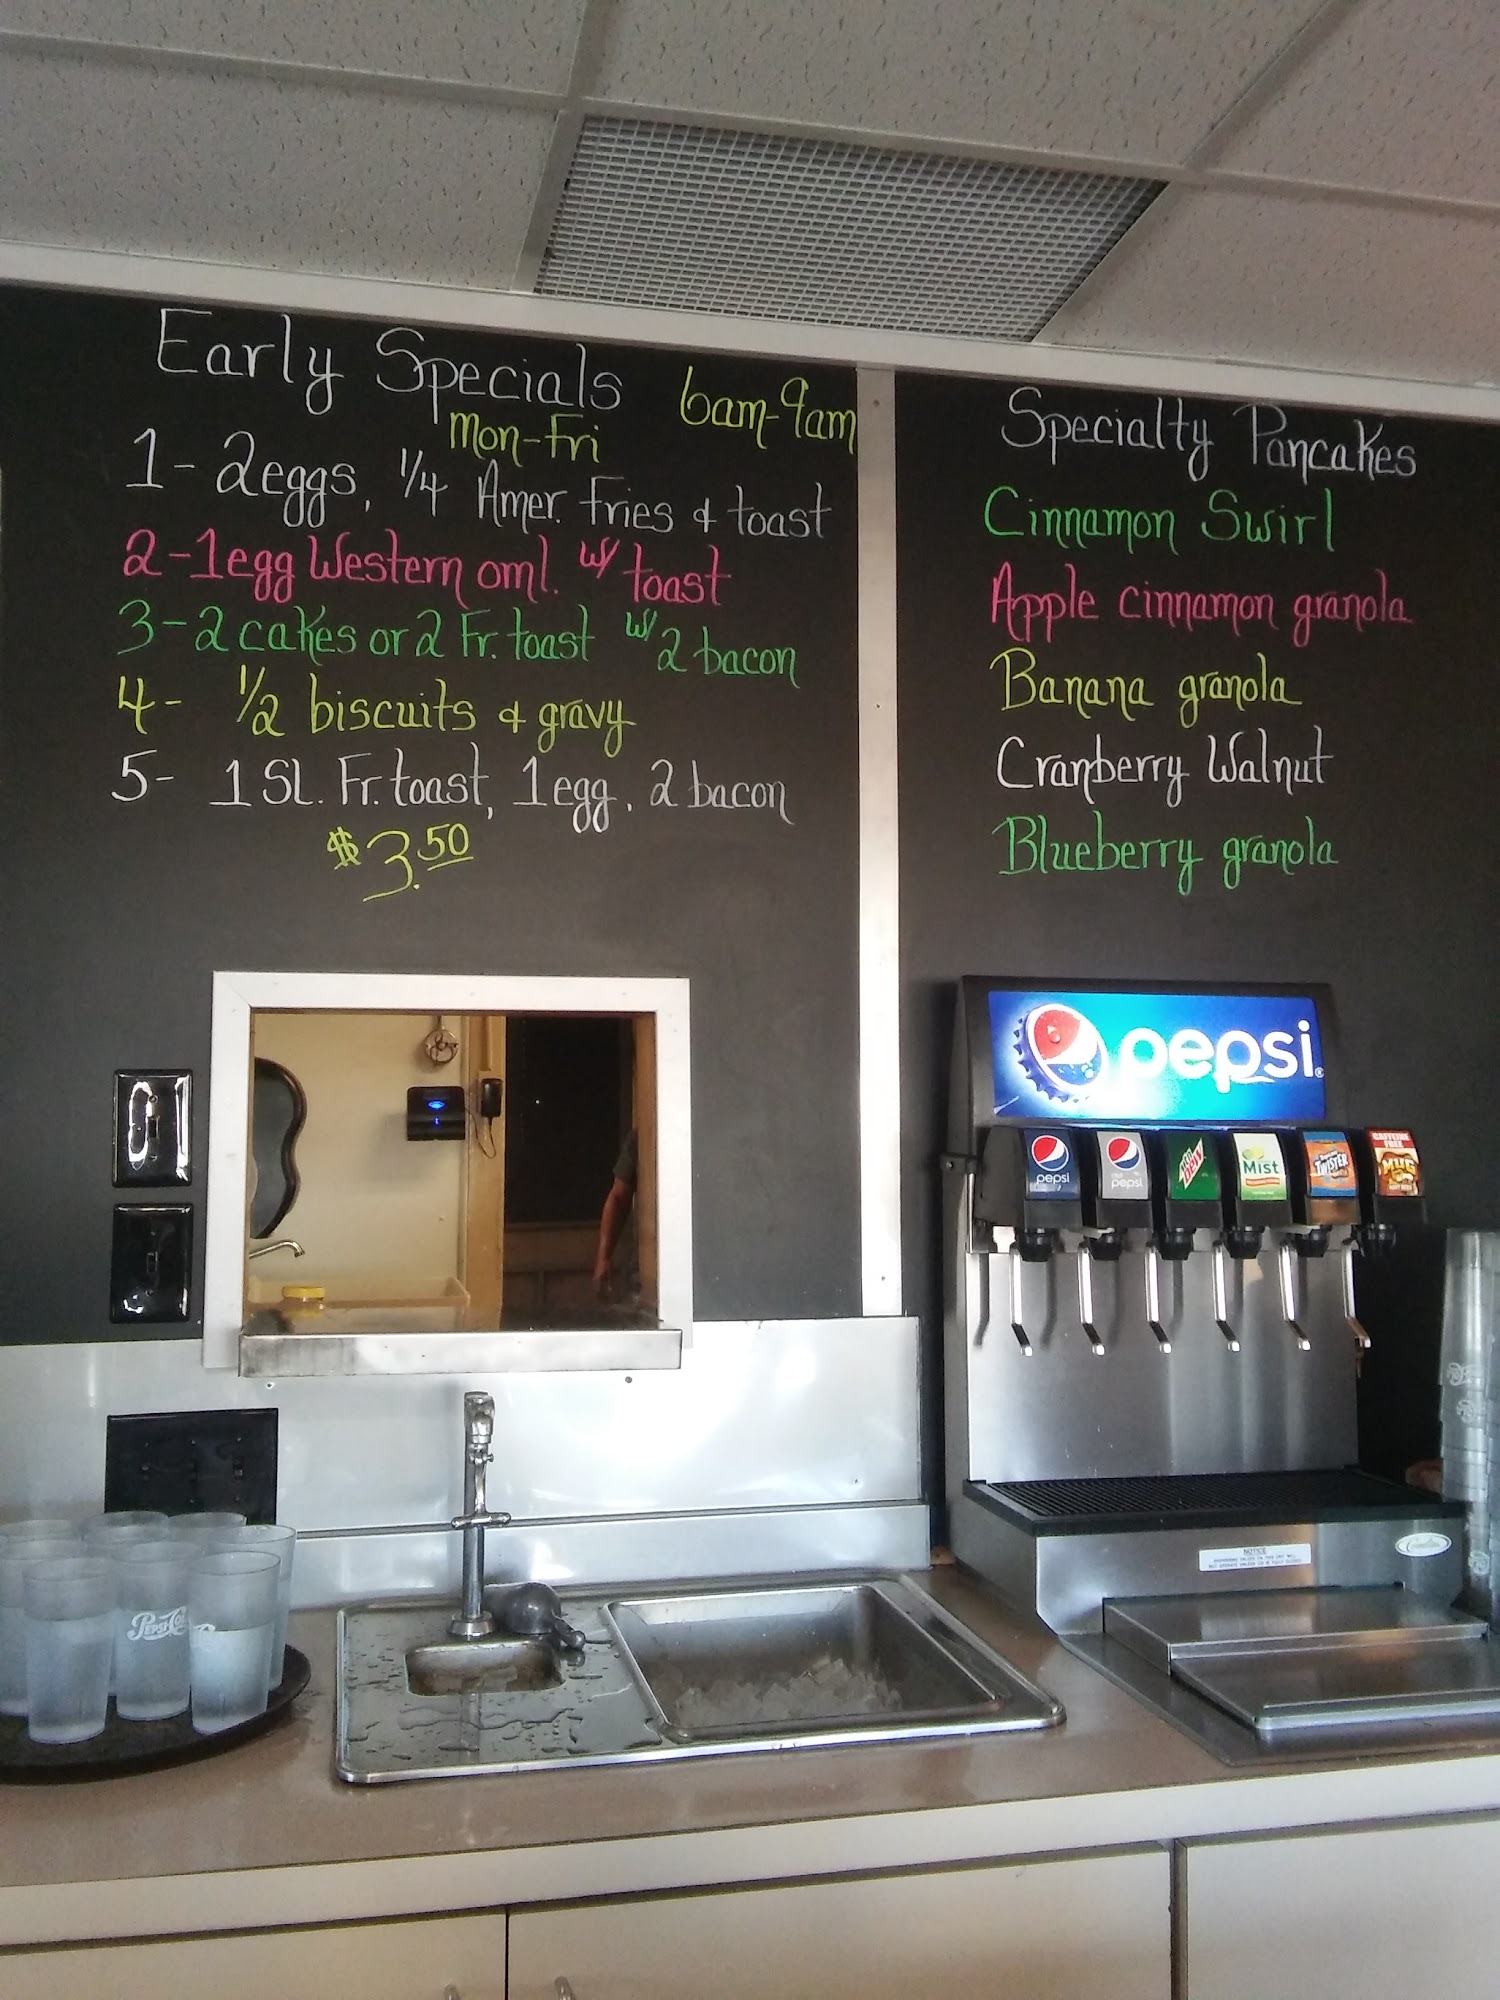 Early Specials 6am-9am
Mon-Fri
1- 2eggs, 1/4 Amer. Fries & toast
2-1egg Western oml. w/ toast
3-2 cakes or 2 Fr. toast w/ 2 bacon
4- 1/2 biscuits & gravy
5- 1 Sl. Fr. toast, 1egg, 2 bacon
$3.50
Specialty Pancakes
Cinnamon Swirl
Apple cinnamon granola
Banana granola
Cranberry Walnut
Blueberry granola
pepsi
pepsi
pepsi
Mist
TWISTER
CAFFEINE FREE
MUG
NOTICE
PEPSI